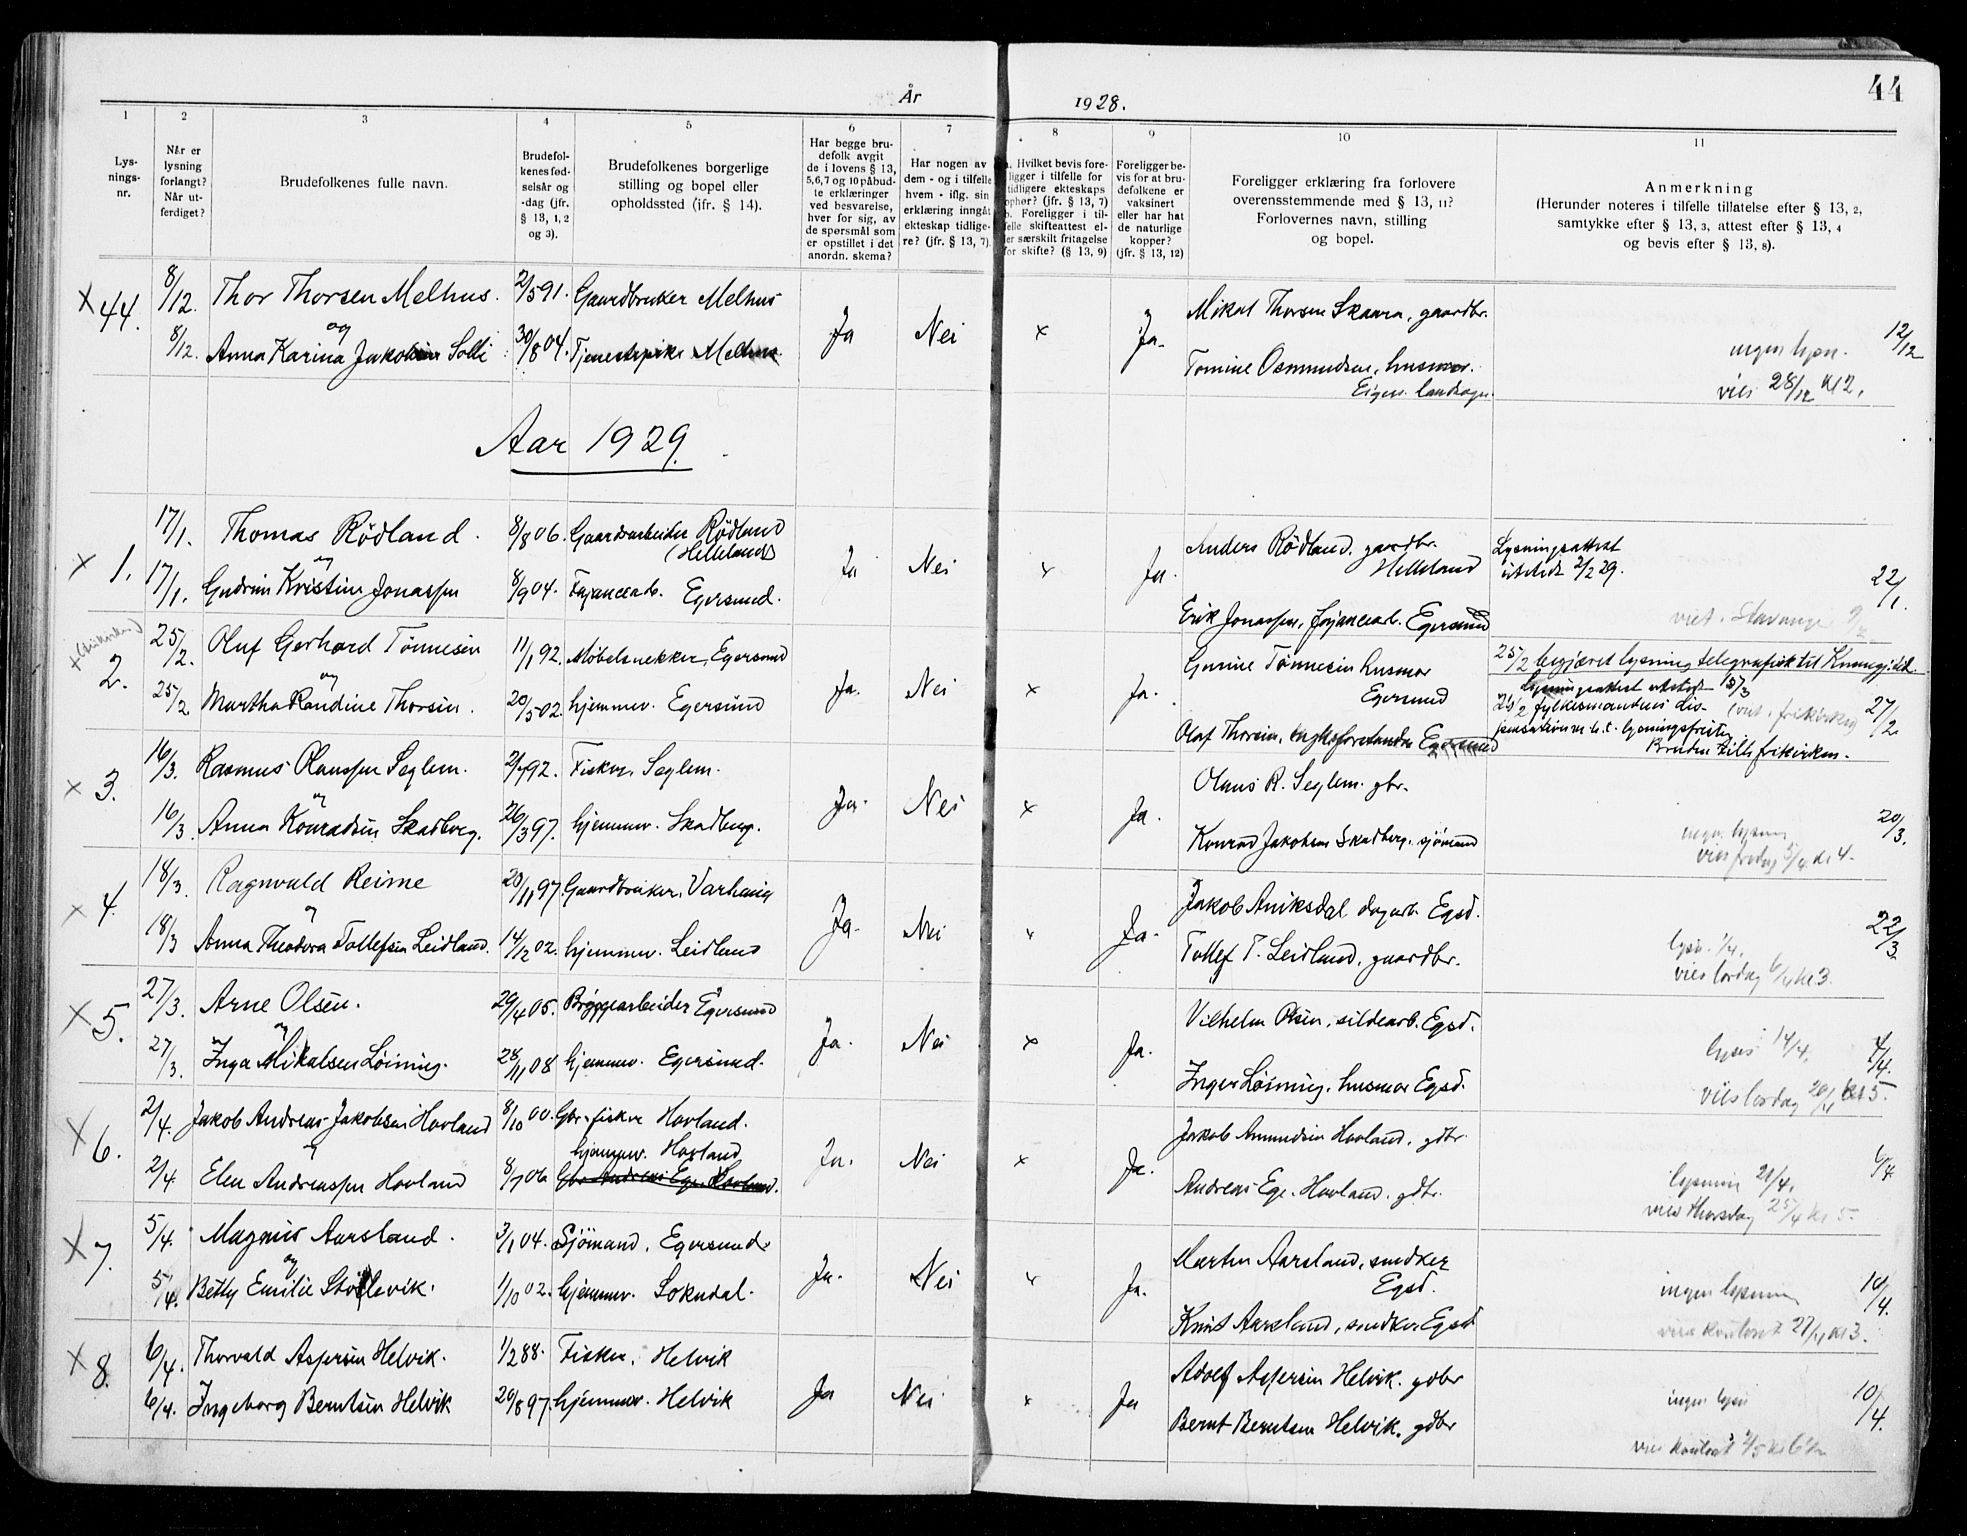 44
År 1928.
1 2 3 4 5 6 7 8 9 10 11
Lys-
nings-
nr.
Når er
lysning
forlangt?
Når ut-
ferdiget?
Brudefolkenes fulle navn.
Brudefol-
kenes fød-
selsår og
-dag (jfr.
§ 13, 1, 2
og 3).
Brudefolkenes borgerlige
stilling og bopel eller
opholdssted (ifr. § 14).
Har begge bru-
defolk avgit
de i lovens § 13,
5,6,7 og 10 påbud-
te erklæringer
ved besvarelse,
hver for sig, av
de spørsmål som
er opstillet i det
anordn. skema?
Har nogen av
dem - og i tilfelle
hvem - iflg. sin
erklæring inngåt
ekteskap tidlige-
re? (jfr. § 13, 7).
a. Hvilket bevis fore-
ligger i tilfelle for
tidligere ekteskaps
ophør? (jfr. § 13, 7)
b. Foreligger i til-
felle skifteattest el-
ler særskilt fritagelse
for skifte? (§ 13, 9)
Foreligger be-
vis for at bru-
defolkene er
vaksinert
eller har hat
de naturlige
kopper?
(jfr. § 13, 12)
Foreligger erklæring fra forlovere
overensstemmende med § 13, 11?
Forlovernes navn, stilling
og bopel.
Anmerkning
(Herunder noteres i tilfelle tillatelse efter § 13, 2,
samtykke efter § 13, 3, attest efter § 13, 4
og bevis efter § 13, 8).
x 44. 8/12. Thor Thorsen Melhus. 2/5 91. Gaardbruker Melhus Ja Nei x Ja. Mikal Thorsen Skaara, gaardbr.
og
8/12. Anna Karina Jakobsen Solli 30/8 04. Tjenestepike Melhus. Tomine Osmundsen, husmor. ingen lysn. 12/12
Eigers. landsogn. vies 28/12 kl 2.
Aar 1929.
x 1. 17/1. Thomas Rödland. 8/8 06. Gaardsarbeider Rödland Ja Nei x Ja. Anders Rödland, gaardbr. Lysningsattest
og (Helleland) Helleland utstedt 2/2 29.
17/1. Gudrun Kristine Jonassen 8/9 04. Fajancearb. Egersund. Erik Jonassen, fajancearb. Egersund viet i Stavanger 22/1.
x 2. 25/2. Oluf Gerhard Tönnesen 11/1 92. Møbelsnekker, Egersund Ja. Nei x Ja. Gurine Tönnesen husmor 25/2 begjæret lysning telegrafisk til
og Egersund Lysningsattest utstedt 5/3
25/2 Martha Randine Thorsen. 20/5 02. hjemmev. Egersund Olaf Thorsen, Egersund fylkesmandens dis- 27/2
pensation m.h.t. lysningsfristen
Bruden tilh frikirken.
x 3. 16/3. Rasmus Olaussen Seglem. 2/7 92. Fisker, Seglem. Ja. Nei x Ja. Olaus R. Seglem. gbr.
og
16/3. Anna Konradsen Skadberg. 26/3 97. hjemmev. Skadberg. Konrad Jakobsen Skadberg, sjömand ingen lysning 20/3.
vies fredag 5/4 kl 4.
x 4. 18/3. Ragnvald Reime 20/11 97. Gaardbruker, Varhaug Ja. Nei x Ja. Jakob Aniksdal dagarb. Egsd.
og
18/3 Anna Theodora Tollefsen Leidland. 14/2 02. hjemmev. Leidland Tollef T. Leidland, gaardbr. lysn. 1/4. 22/3.
vies lordag 6/4 kl 3.
x 5. 27/3. Arne Olsen. 29/4 05. Bryggearbeider Egersund Ja. Nei x Ja. Vilhelm Olsen, sildearb. Egsd.
og
27/3. Inga Mikalsen Löining. 28/11 08 hjemmev. Egersund. Inger Löining, husmor Egsd. lysn 14/4. 4/4.
vies lordag 20/4 kl 5.
x 6. 2/4. Jakob Andreas Jakobsen Hovland 8/10 00. Gbr. fisker Hovland. Ja. Nei x Ja. Jakob Amundsen Hovland, gdbr.
og hjemmev. Hovland
2/4. Elen Andreassen Hovland 8/7 06 Gbr Andreas Ege. Hovland. Andreas Ege. Hovland. gdbr. lysning 21/4, 6/4
vies thorsdag 25/4 kl 5.
x 7. 5/4. Magnus Aarsland. 3/1 04. Sjömand, Egersund. Ja. Nei x Ja. Martin Aarsland, smdker
og Egsd.
5/4. Betty Emilie Stölevik. 1/10 02. hjemmev. Sokndal. Knut Aarsland, snedker Egsd ingen lysning 10/4.
vies kontoret 27/4 kl 3.
x 8. 6/4. Thorvald Aspersen Helvik. 1/2 88. Fisker, Helvik Ja Nei x Ja Adolf Aspersen Helvik. gdbr
6/4. Ingeborg Berntsen Helvik 20/8 97. hjemmev. Helvik Bernt Berntsen Helvik. gdbr ingen lysn 10/4.
vies kontoret